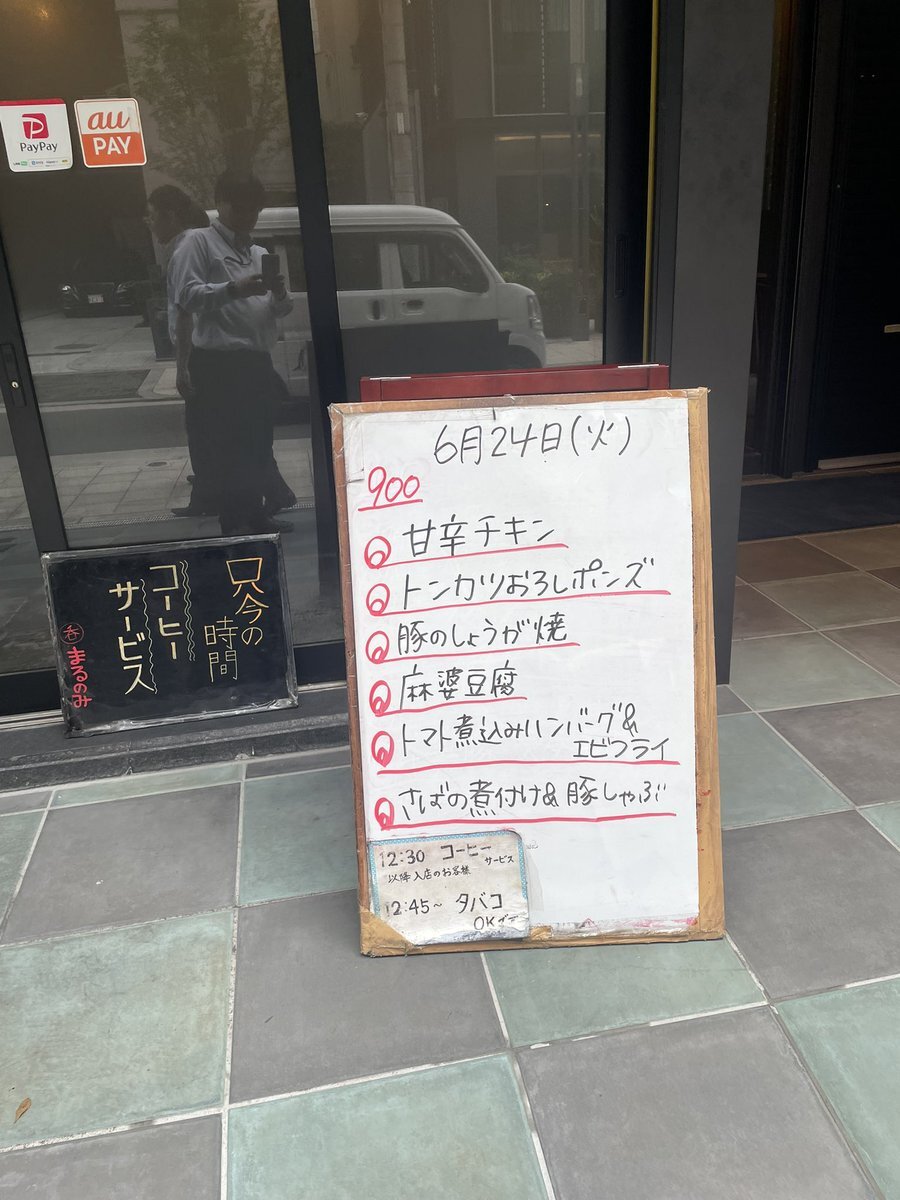 PayPay
au
PAY
6月24日(火)
900
甘辛チキン
トンカツおろしポンズ
豚のしょうが焼
麻婆豆腐
トマト煮込みハンバーグ&
エビフライ
さばの煮付け&豚しゃぶ
12:30 コーヒー
サービス
以降入店のお客様
12:45~ タバコ
OKです
只今の
時間
コーヒー
サービス
呑まるのみ